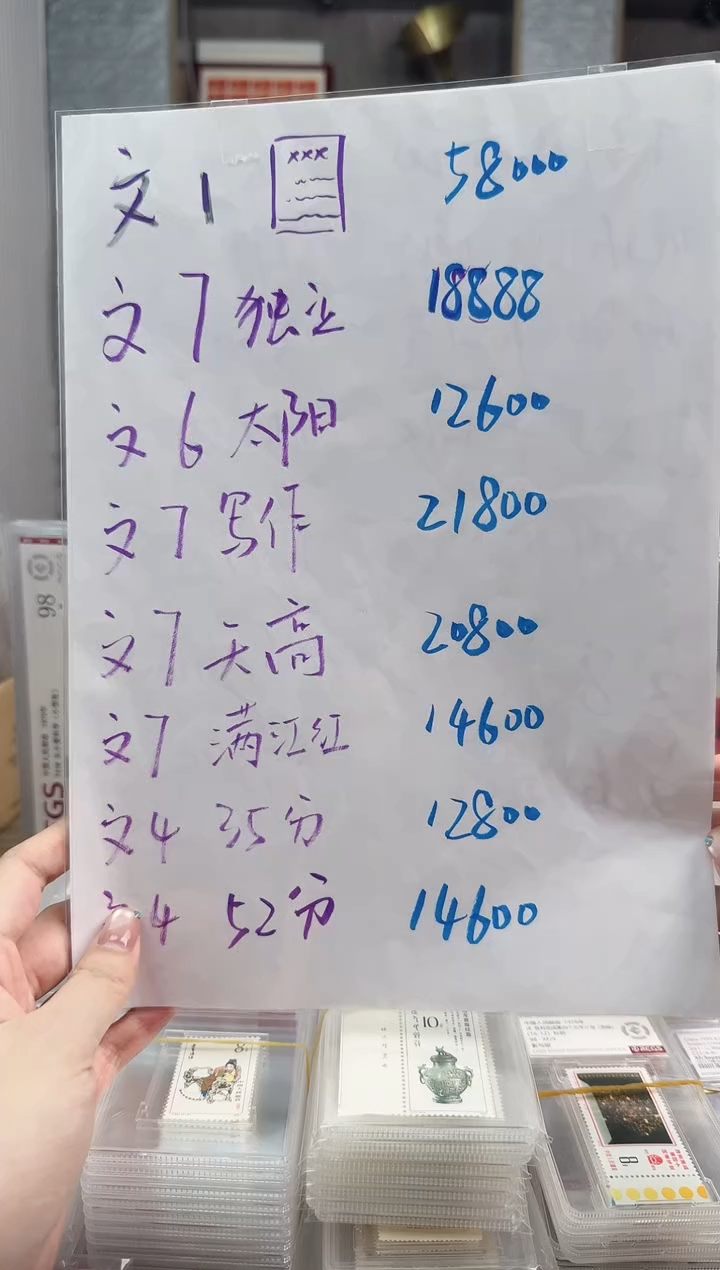 文1 xxx 58000
文7 独立 18888
文6 太阳 12600
文7 写作 21800
文7 天高 20800
文7 满江红 14600
文4 35分 12800
文4 52分 14600
98
10
8
8